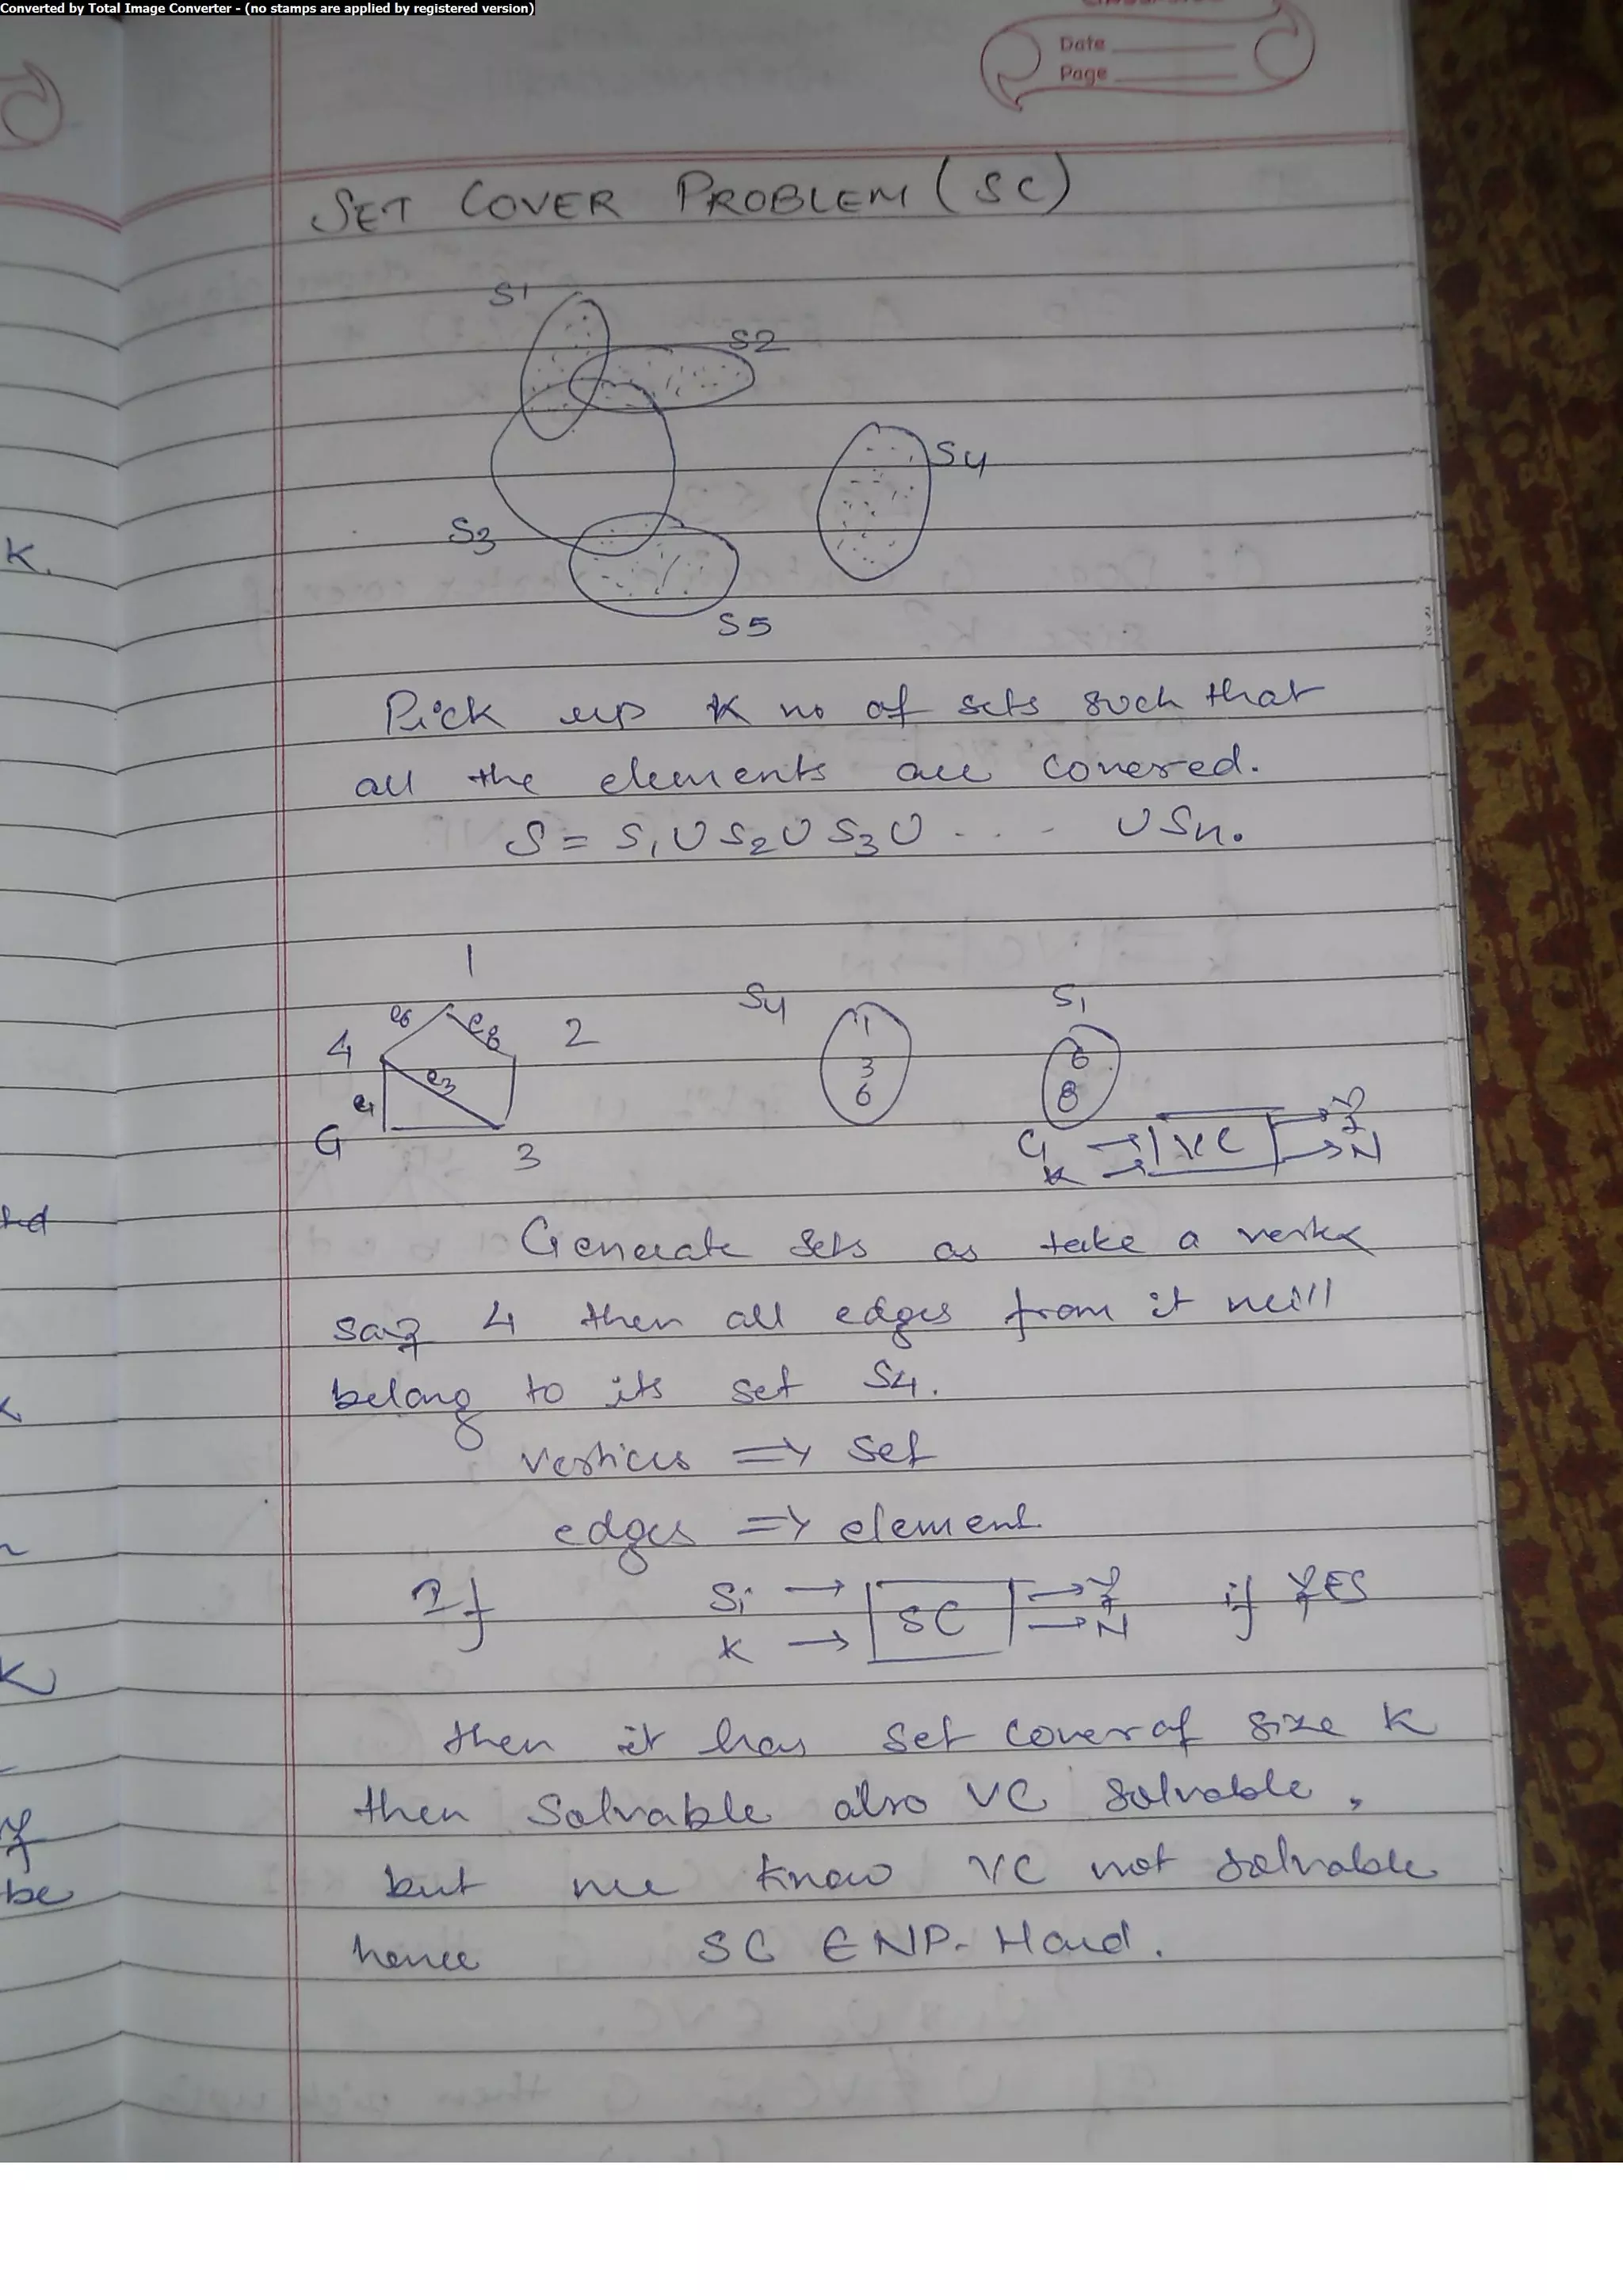 Converted by Total Image Converter - (no stamps are applied by registered version)
Date
Page
SET COVER PROBLEM (SC)
S1
S2
S4
S3
K.
S5
Pick up K no of sets such that
all the elements are covered.
S = S1 U S2 U S3 U .... U Sn.
1
S4 S1
e6 e8 2
4 1 6
e3 3 8
e1 6
G 3
G → VC → Y
K → → N
Generate sets as take a vertex
say 4 then all edges from it will
belong to its set S4.
vertices => set
edges => element
If Si → SC → Y if YES
K → → N
K
then it has set cover of size K
then solvable also VC solvable,
but we know VC not solvable
be
hence SC ∈ NP-Hard.